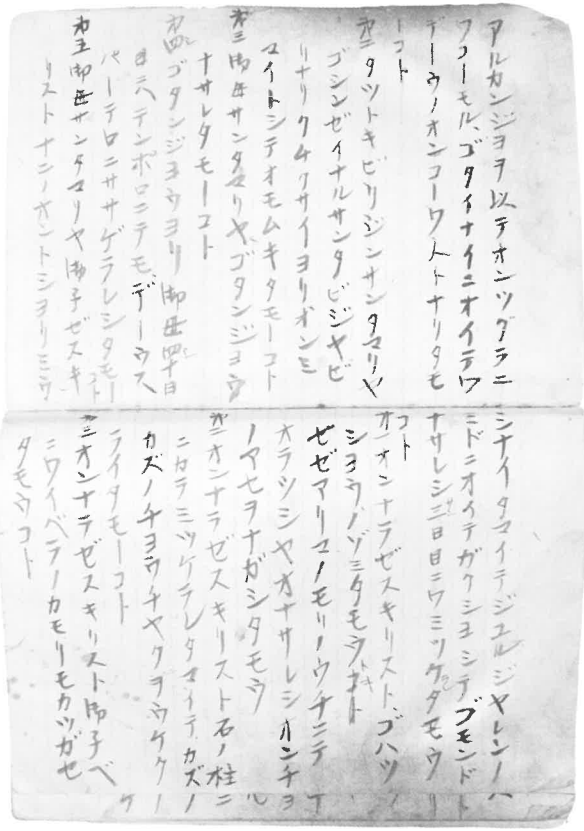 アルカンジヨヲ以テオンツグラニ
ワコーモル、ゴタイナイニオイテワ
デーウノオンコーワストナリタモ
ーコト
第二タツトキビリジンサンタマリヤ
ゴシンゼイナルサンタビジヤビ
リナリクムクサイヨリオンミ
マイトシテオモムキタモーコト
第三御母サンタマリヤ、ゴタンジヨウ
ナサレタモーコト
第四ゴタンジヨウヨリ御母四十日
目ニヘテンポロニテモデーウス
パーテロニササゲラレシタモーコト
第五御母サンタマリヤ御子ゼスキ
リストナニノオントシヨリミウ
シナイタマイテジユルジヤレンノハ
ミドニオイテガクシヨシテブモンドー
ナサレシ三日目ニワミツケダモウリ
コト
第一オンナラゼスキリスト、ゴハツノ
シヨウノゾミタモウトキ
ゼゼマリマノモリノウチニテ
オラツシヤオナサレシオンチヨ
ノアセヲナガシタモウル
第二オンナラゼスキリスト石ノ柱ニ
ニカラミツケラレタマイテ、カズノ
カズノチヨウチヤクヲウケクー
ライタモーコト
第三オンナラゼスキリスト御子ベ
ニワイベラノカモリモカツガセ
タモウコト